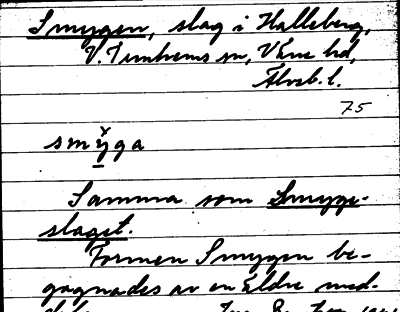 Smygen, slag i Hallsberg,
V. Tunhems sn, Väne hd,
Älvsb. l.
75
smy̆ga
Samma som Smyge-
slaget.
Formen Smygen be-
gagnades av en äldre med-